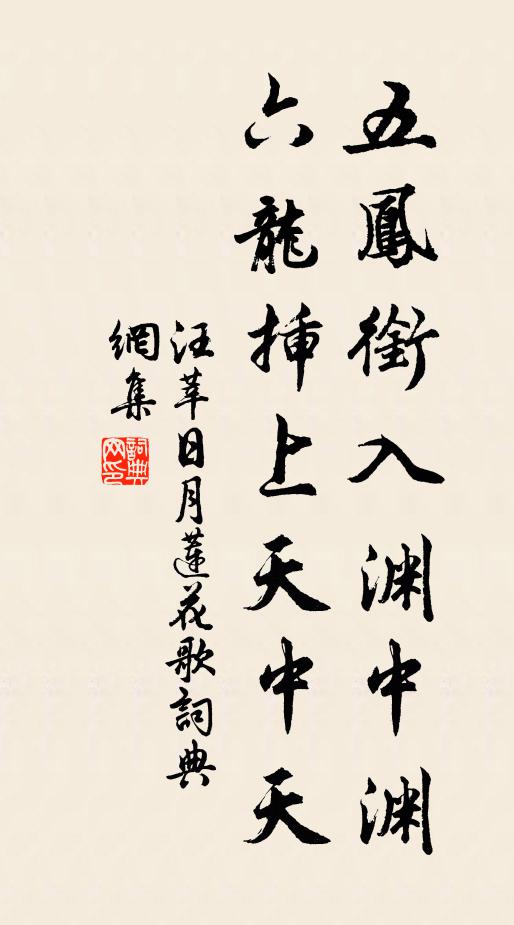 五鳳銜入渊中渊
六龍挿上天中天
汪莘日月蓮花歌詞典
網集
詞典
网印